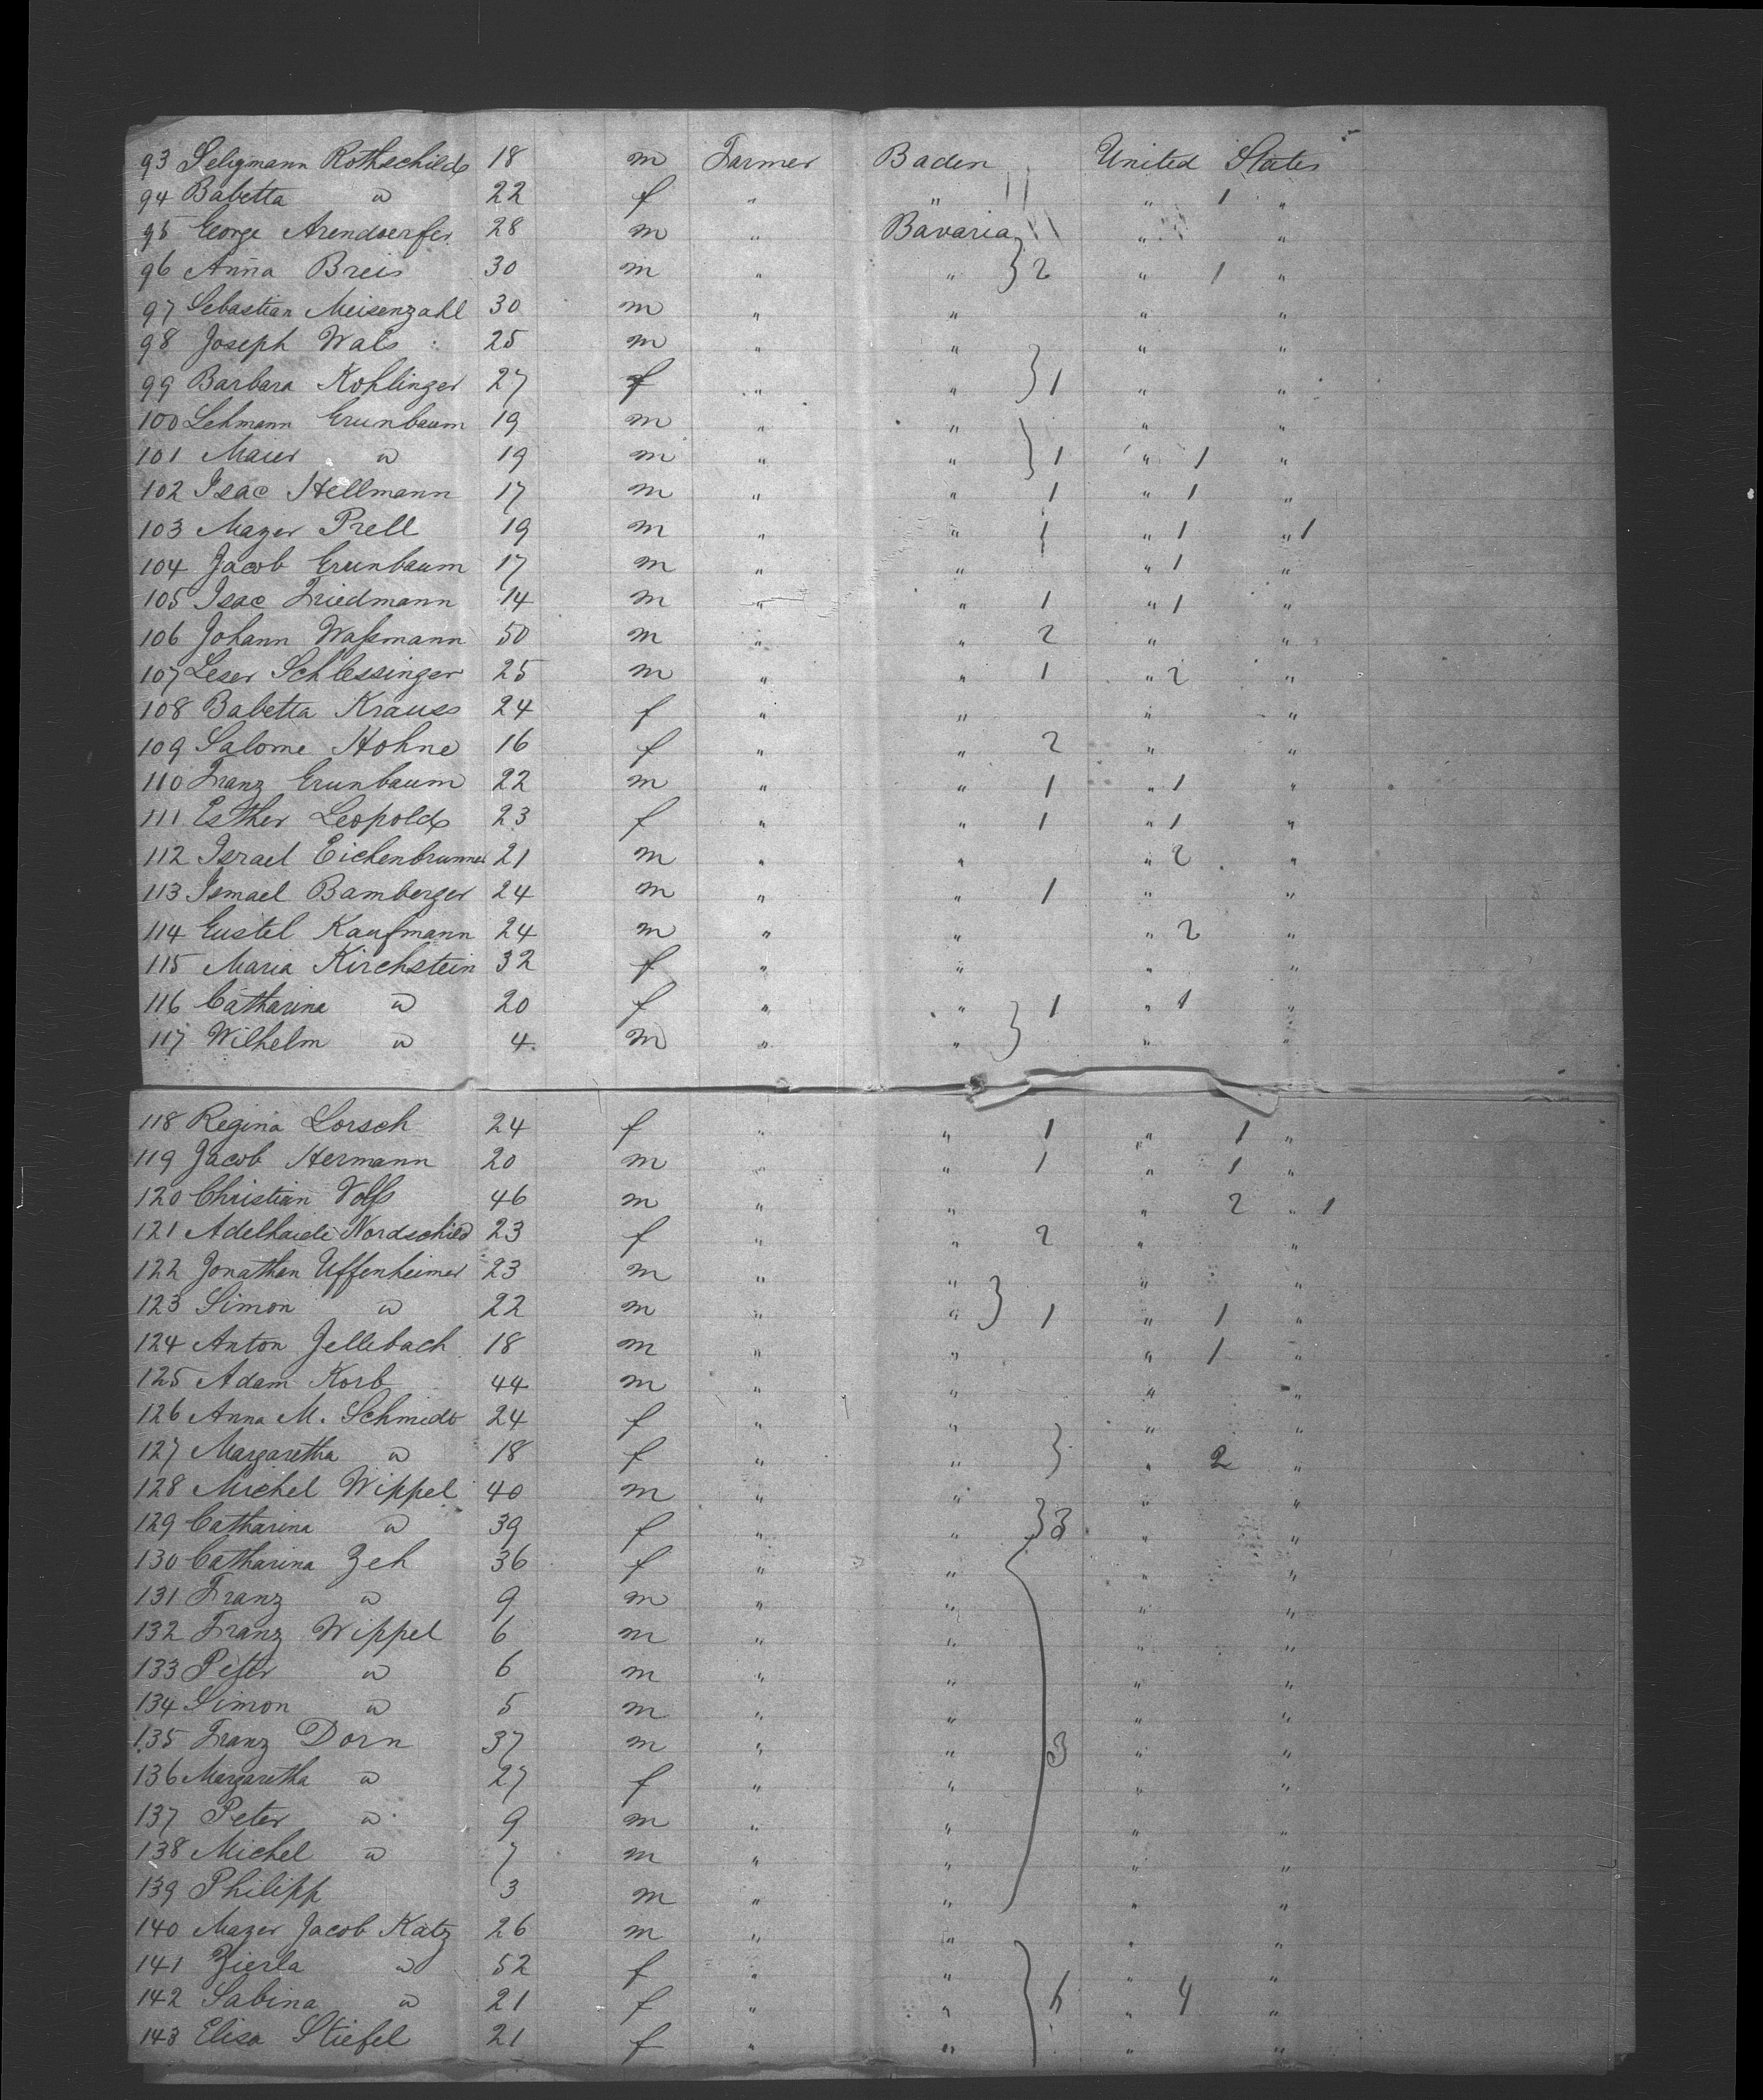 93 Seligmann Rothschild 18 m Farmer Baden United States
94 Babetta " 22 f " " " 1 "
95 George Arendoerfer 28 m " Bavaria " "
96 Anna Breis 30 m " " } 2 " 1 "
97 Sebastian Meisenzahl 30 m " " " "
98 Joseph Wals 25 m " " " "
99 Barbara Kohlinger 27 f " " } 1 " "
100 Lehmann Grunbaum 19 m " " " "
101 Maier " 19 m " " } 1 " 1 "
102 Isac Hellmann 17 m " " 1 " 1 "
103 Mayer Prell 19 m " " 1 " 1 " 1
104 Jacob Grunbaum 17 m " " " 1 "
105 Isac Friedmann 14 m " " 1 " 1 "
106 Johann Waſsmann 50 m " " 2 " "
107 Leser Schlessinger 25 m " " 1 " 2 "
108 Babetta Krauss 24 f " " " "
109 Salome Hohne 16 f " " 2 " "
110 Franz Grunbaum 22 m " " 1 " 1 "
111 Esther Leopold 23 f " " 1 " 1 "
112 Israel Eichenbrunner 21 m " " " 2 "
113 Ismael Bamberger 24 m " " 1 " "
114 Gustel Kaufmann 24 m " " " 2 "
115 Maria Kirchstein 32 f " " " "
116 Catharina " 20 f " " 1 " 1 "
117 Wilhelm " 4 m " " } " "
118 Regina Lorsch 24 f " " 1 " 1 "
119 Jacob Hermann 20 m " " 1 " 1 "
120 Christian Volſs 46 m " " " 2 " 1
121 Adelhaide Nordschild 23 f " " 2 " "
122 Jonathan Uffenheimer 23 m " " " "
123 Simon " 22 m " " } 1 " 1 "
124 Anton Zellebach 18 m " " " 1 "
125 Adam Korb 44 m " " " "
126 Anna M. Schmidt 24 f " " " "
127 Margaretha " 18 f " " } " 2 "
128 Michel Wippel 40 m " " " "
129 Catharina " 39 f " " } 3 " "
130 Catharina Zeh 36 f " " " "
131 Franz " 9 m " " " "
132 Franz Wippel 6 m " " " "
133 Peter " 6 m " " " "
134 Simon " 5 m " " " "
135 Franz Dorn 37 m " " 3 " "
136 Margaretha " 27 f " " " "
137 Peter " 9 m " " " "
138 Michel " 7 m " " " "
139 Philipp 3 m " " " "
140 Mayer Jacob Katz 26 m " " " "
141 Zierla " 52 f " " " "
142 Sabina " 21 f " " " 4 "
143 Elisa Stiefel 21 f " " " "